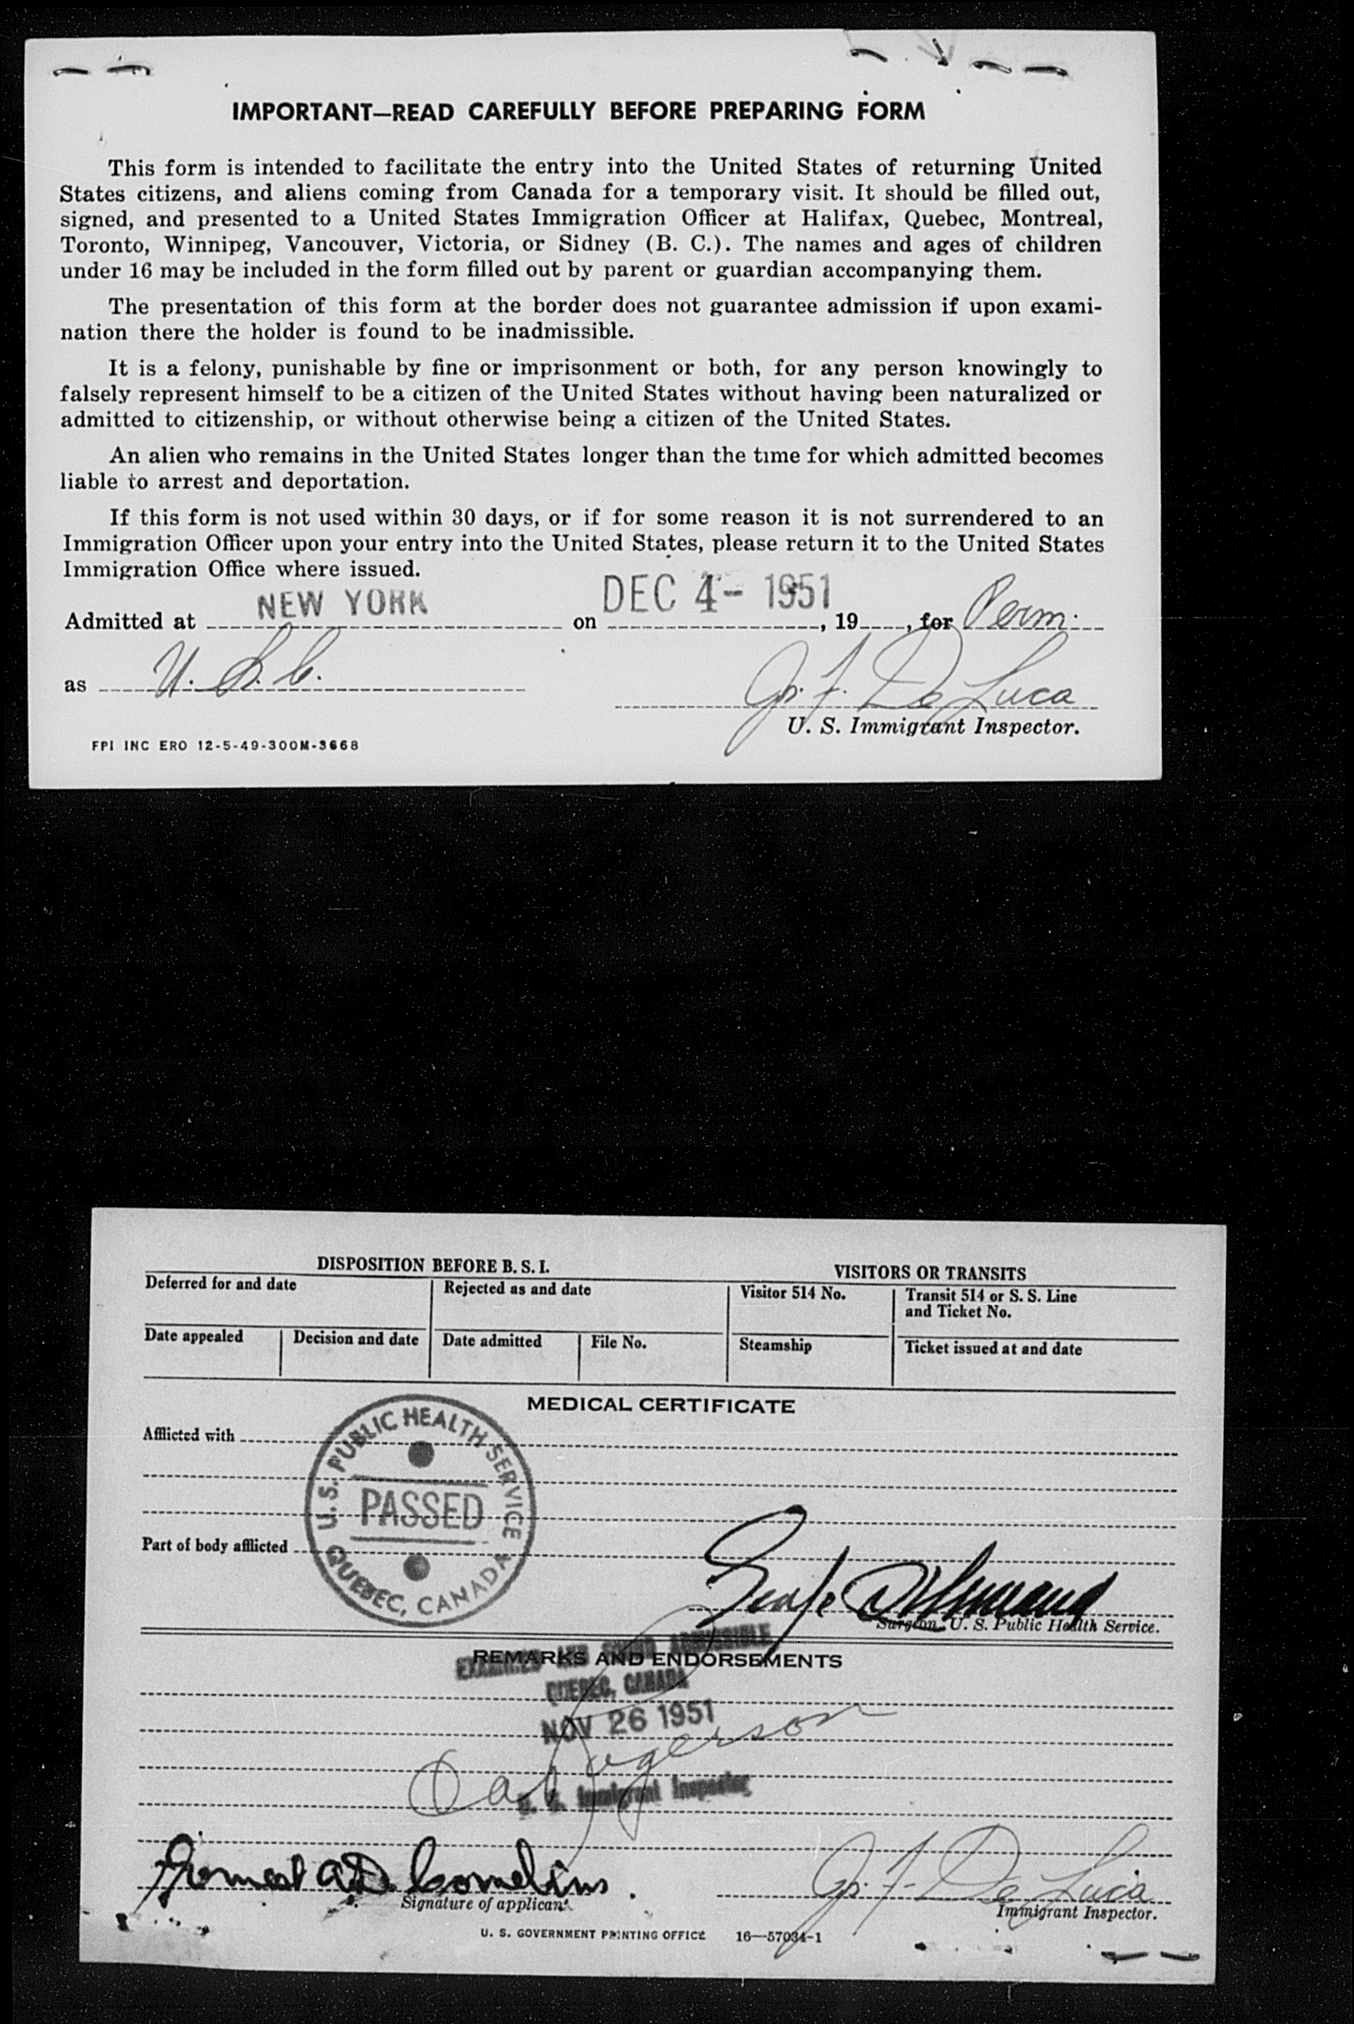 IMPORTANT—READ CAREFULLY BEFORE PREPARING FORM
This form is intended to facilitate the entry into the United States of returning United
States citizens, and aliens coming from Canada for a temporary visit. It should be filled out,
signed, and presented to a United States Immigration Officer at Halifax, Quebec, Montreal,
Toronto, Winnipeg, Vancouver, Victoria, or Sidney (B. C.). The names and ages of children
under 16 may be included in the form filled out by parent or guardian accompanying them.
The presentation of this form at the border does not guarantee admission if upon exami-
nation there the holder is found to be inadmissible.
It is a felony, punishable by fine or imprisonment or both, for any person knowingly to
falsely represent himself to be a citizen of the United States without having been naturalized or
admitted to citizenship, or without otherwise being a citizen of the United States.
An alien who remains in the United States longer than the time for which admitted becomes
liable to arrest and deportation.
If this form is not used within 30 days, or if for some reason it is not surrendered to an
Immigration Officer upon your entry into the United States, please return it to the United States
Immigration Office where issued.
Admitted at NEW YORK on DEC 4 - 1951, 19, for Perm.
as U. S. C. Jos. F. De Luca
U. S. Immigrant Inspector.
FPI INC ERO 12-5-49-300M-3668
DISPOSITION BEFORE B. S. I. VISITORS OR TRANSITS
Deferred for and date Rejected as and date Visitor 514 No. Transit 514 or S. S. Line
and Ticket No.
Date appealed Decision and date Date admitted File No. Steamship Ticket issued at and date
MEDICAL CERTIFICATE
Afflicted with
U. S. PUBLIC HEALTH SERVICE
PASSED
QUEBEC, CANADA
Part of body afflicted
Surgeon, U. S. Public Health Service.
EXAMINED AND FOUND ADMISSIBLE
REMARKS AND ENDORSEMENTS
QUEBEC, CANADA
NOV 26 1951
U. S. Immigrant Inspector
De Luca
Signature of applicant. Immigrant Inspector.
U. S. GOVERNMENT PRINTING OFFICE 16—57034-1